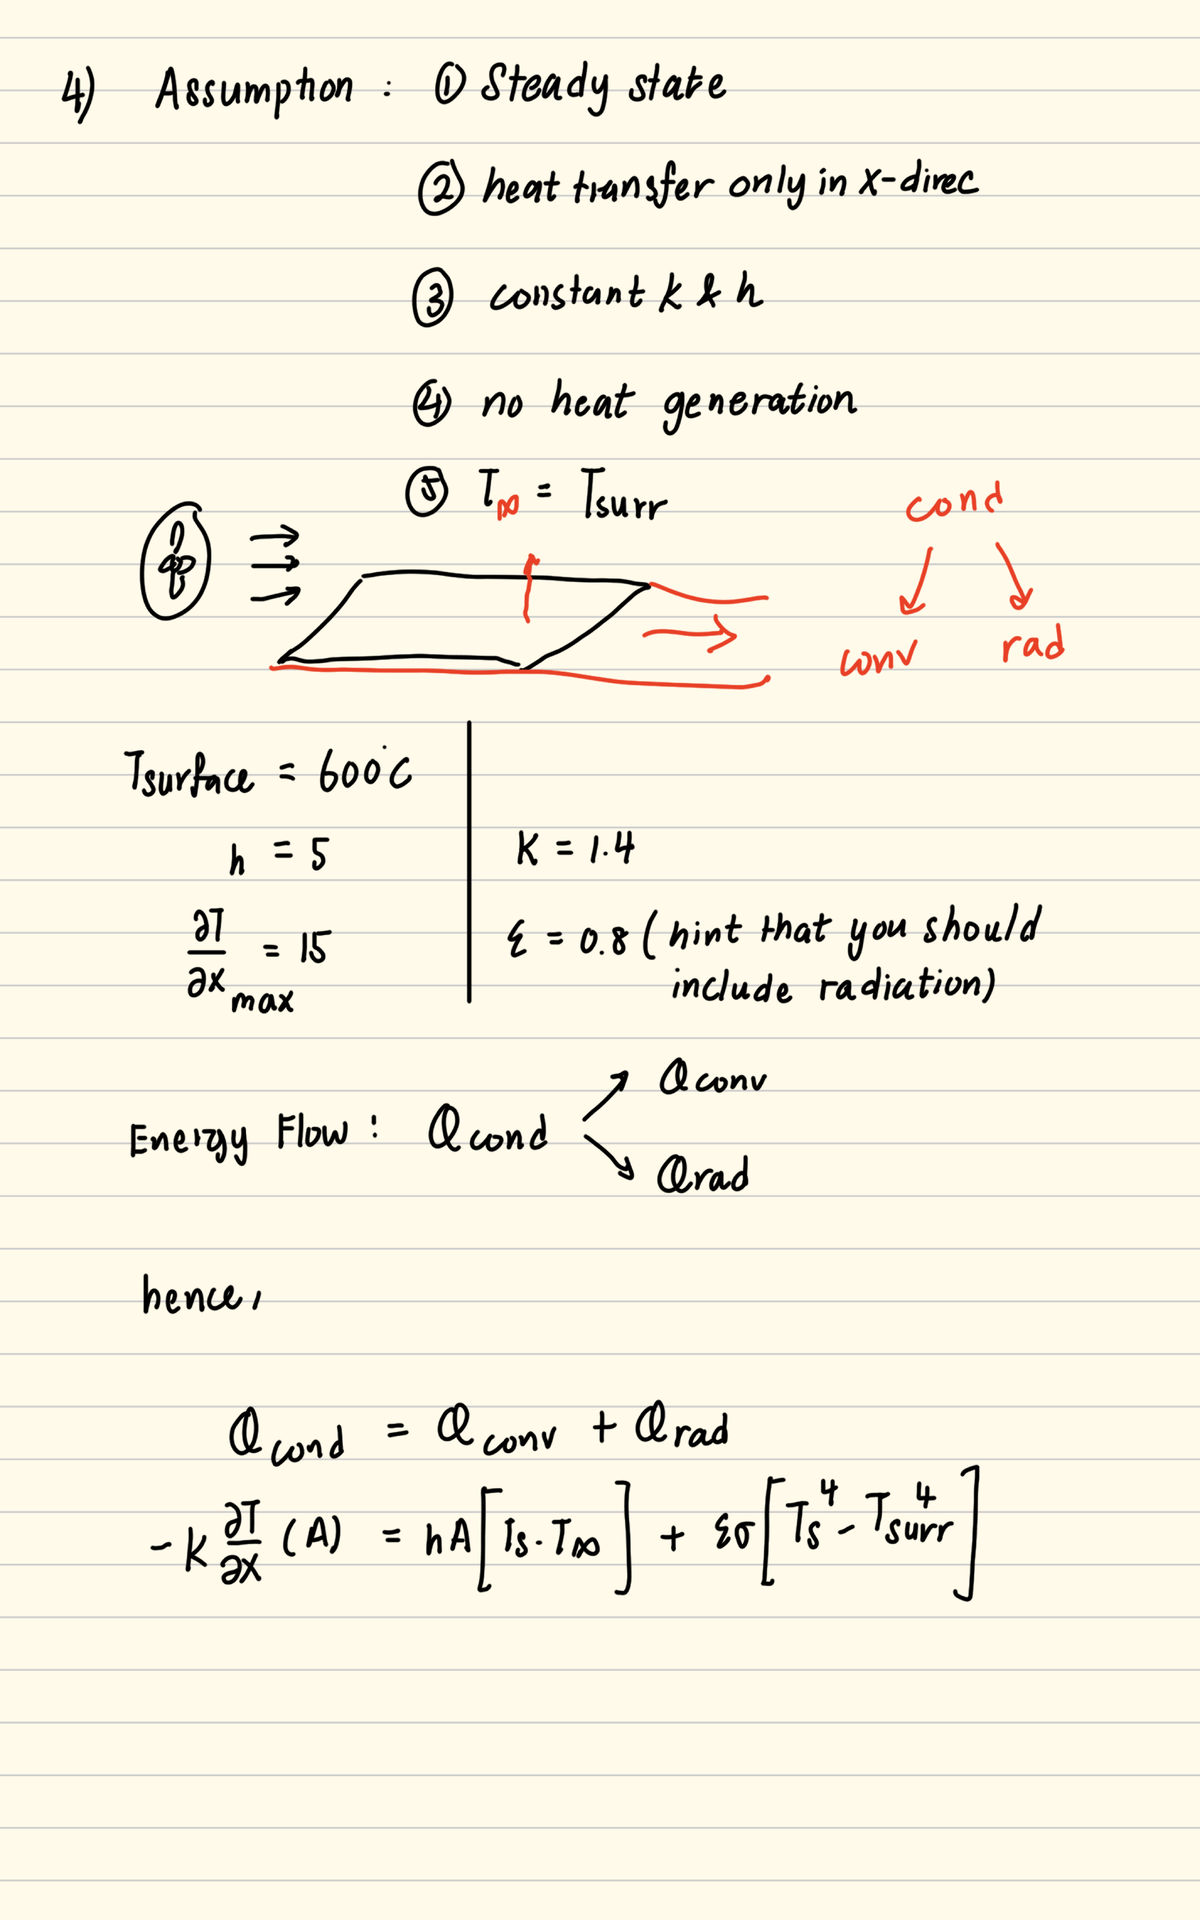 4) Assumption : ① Steady state
② heat transfer only in x-direc
③ constant k & h
④ no heat generation
⑤ T∞ = Tsurr
cond
conv rad
Tsurface = 600°C
h = 5
K = 1.4
∂T/∂x max = 15
ε = 0.8 (hint that you should
include radiation)
Energy Flow : Qcond → Qconv
→ Qrad
hence,
Qcond = Qconv + Qrad
-K ∂T/∂x (A) = hA[Ts - T∞] + εσ[Ts⁴ - Tsurr⁴]